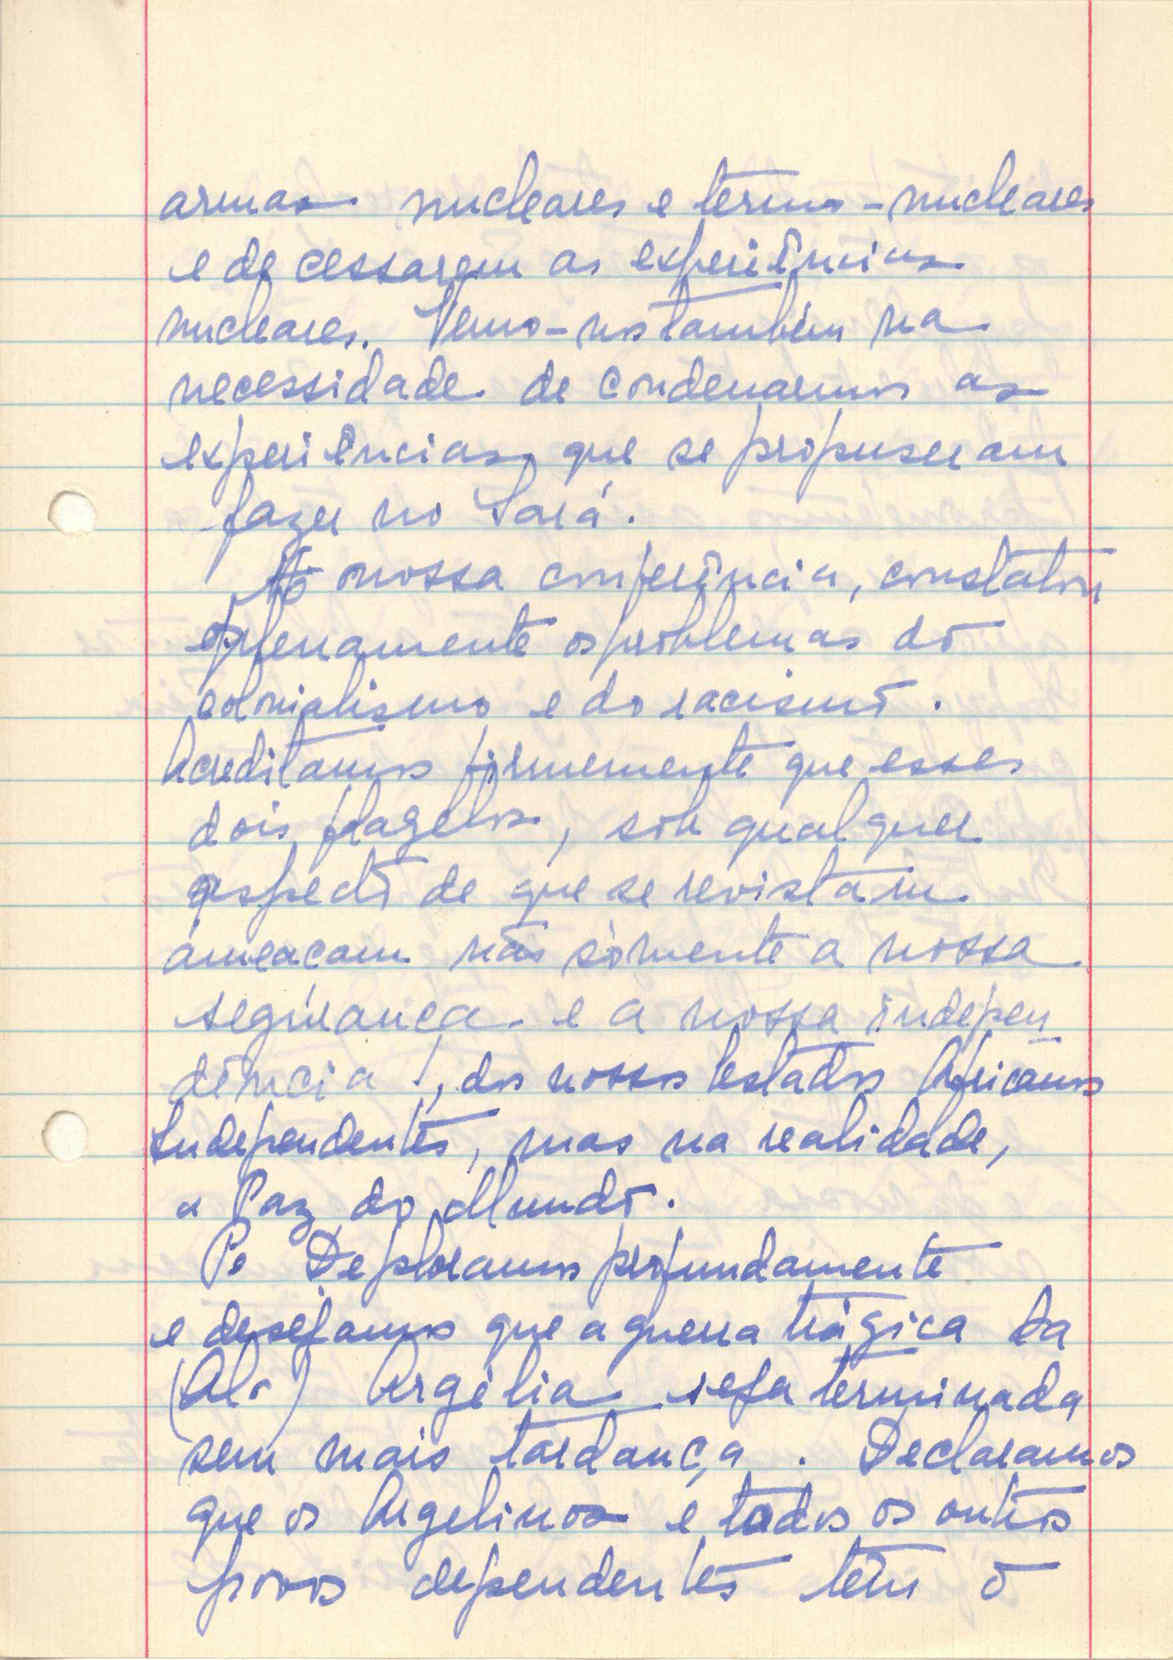 armas nucleares e termo-nucleares
e de cessarem as experiências
nucleares. Vemo-nos também na
necessidade de condenarmos as
experiências que se propuseram
fazer no Sará.
nossa conferência, constatou
plenamente os problemas do
colonialismo e do racismo.
Acreditamos firmemente que esses
dois flagelos, sob qualquer
aspecto de que se revistam
ameaçam não sòmente a nossa
segurança e a nossa indepen
dência, dos nossos Estados Africanos
Independentes, mas na realidade,
a Paz do Mundo.
Deploramos profundamente
e desejamos que a guerra trágica da
(Alr) Argélia seja terminada
sem mais tardança. Declaramos
que os Argelinos e todos os outros
povos dependentes têm o